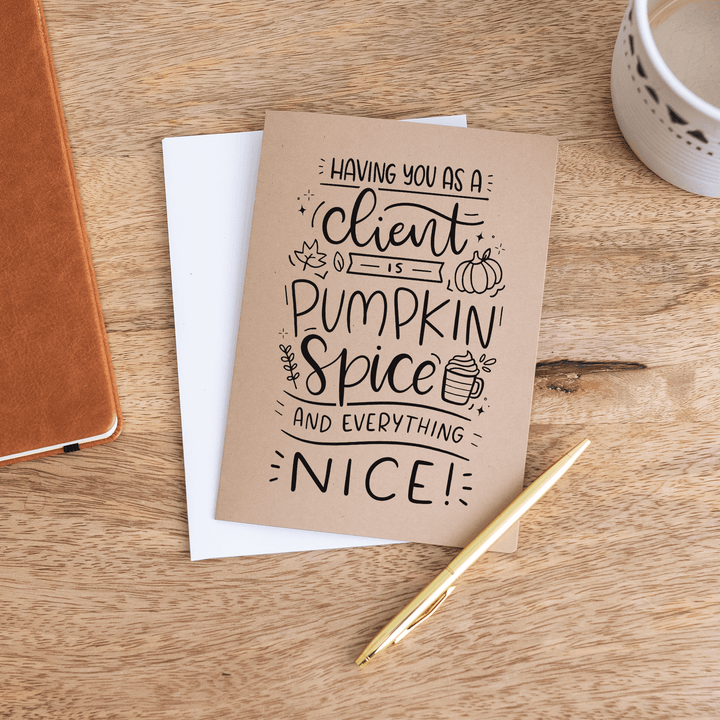 HAVING YOU AS A
client
IS
PUMPKIN
Spice
AND EVERYTHING
NICE!